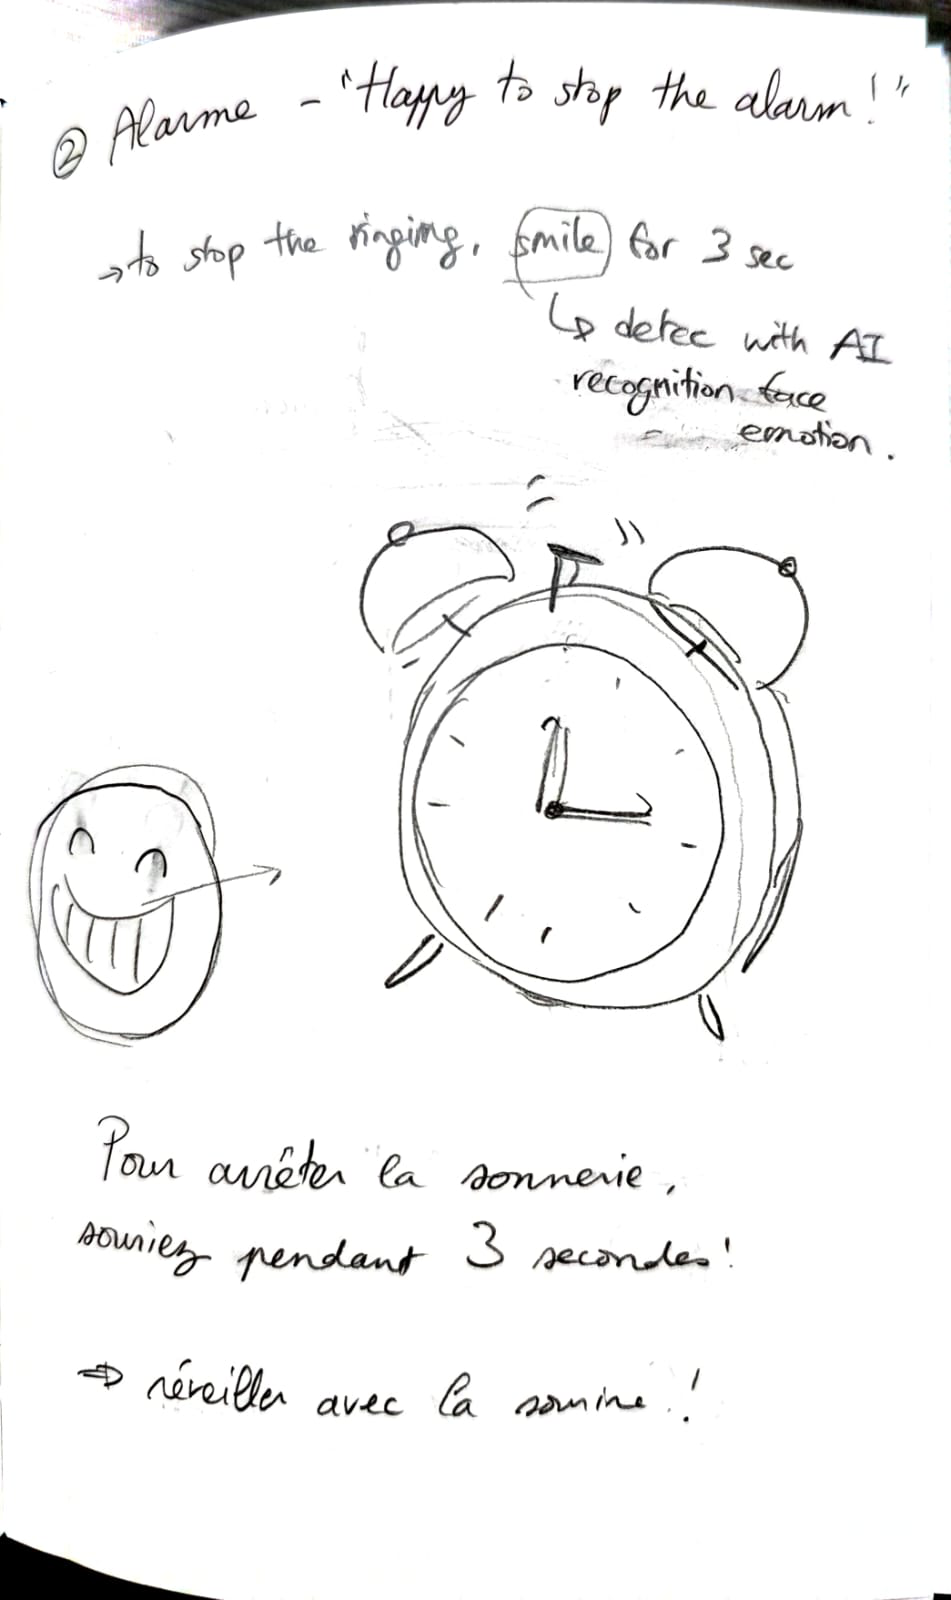 ② Alarme - "Happy to stop the alarm!"
→ to stop the ringing, smile for 3 sec
↳ detec with AI
recognition face
emotion.
Pour arrêter la sonnerie,
souriez pendant 3 secondes!
⇒ réveiller avec la sourire!